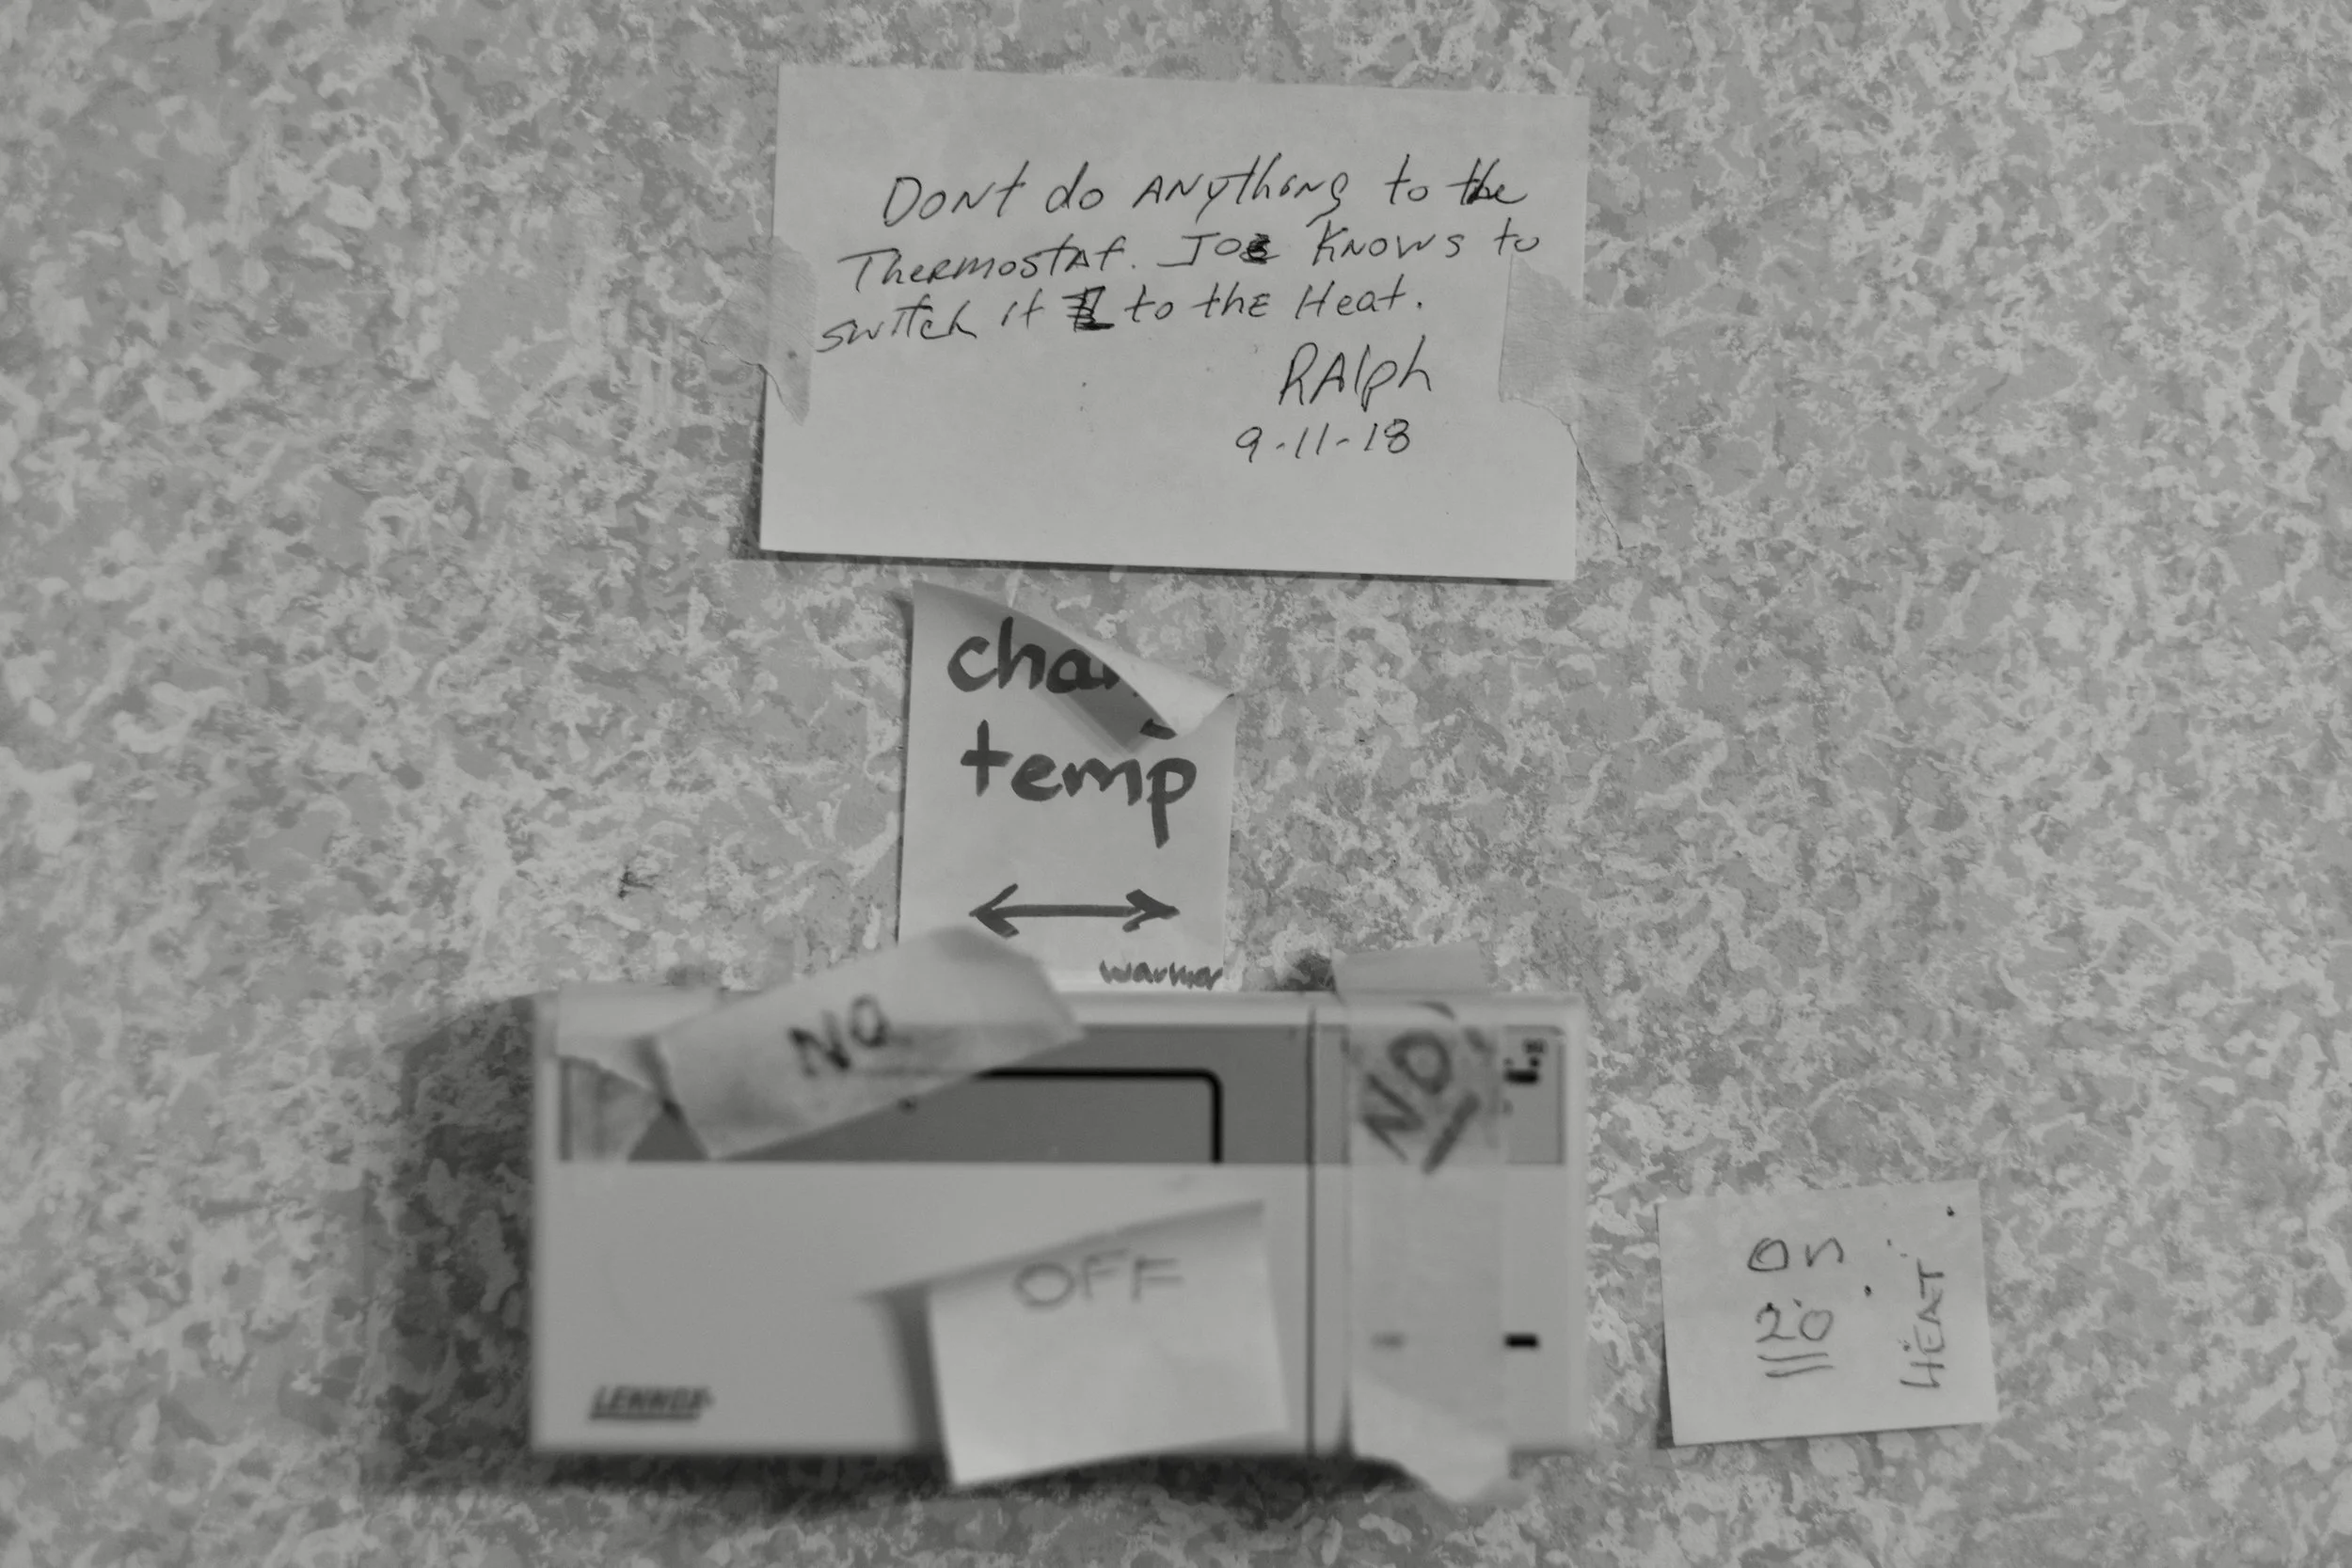 DONt do ANythiNg to the
ThermostAt. JOE KNOWS to
switch it to the Heat.
RAlph
9-11-18
temp
warmer
NO
NO
OFF
on
20
HEAT
LENNOX